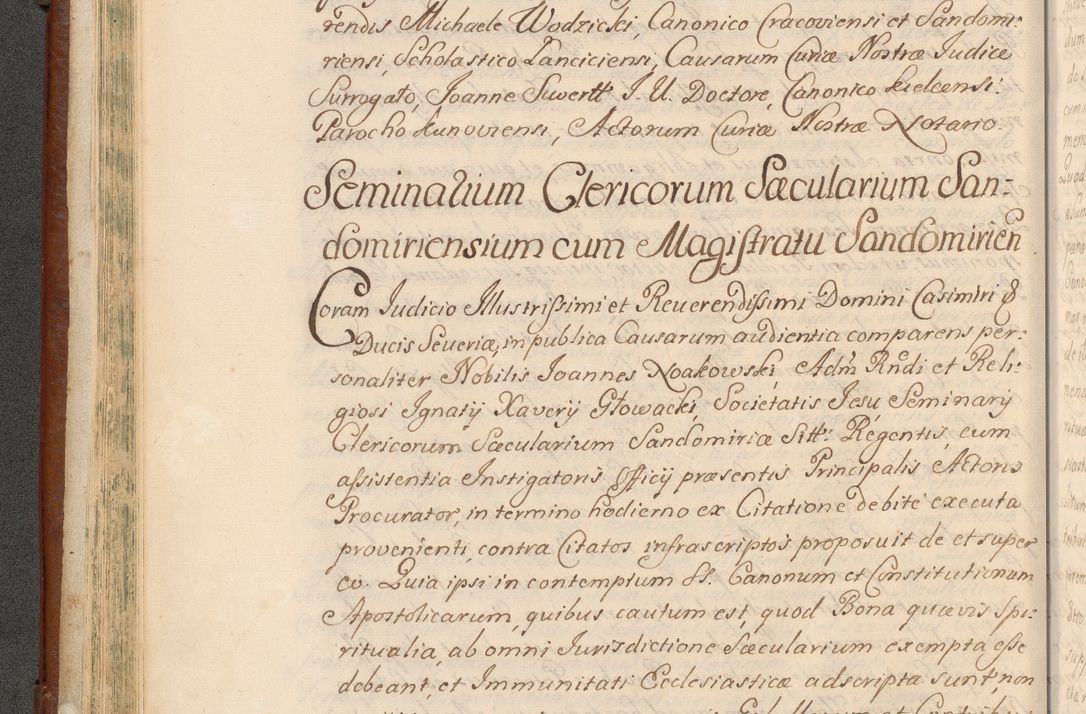 rendis Michaele Wodzicki, Canonico Cracoviensi et Sandomi-
riensi, Scholastico Lanciciensi, Causarum Curiæ Nostræ Iudice
Surrogato, Joanne Suwertt I. U. Doctore, Canonico Kielcensi.
Parocho Kunoviensi, Actorum Curiæ Nostræ Notario.
Seminarium Clericorum Sæcularium San-
domiriensium cum Magistratu Sandomirien
Coram Iudicio Illustrissimi et Reverendissimi Domini Casimiri &
Ducis Severiæ, in publica Causarum audientia comparens per-
sonaliter Nobilis Joannes Noakowski, Adm Rndi et Reli-
giosi Ignatij Xaverij Głowacki, Societatis Jesu, Seminarij
Clericorum Sæcularium Sandomiriæ Sitti Regentis, cum
assistentia Instigatoris Officij præsentis Principalis Actoris
Procurator, in termino hodierno ex Citatione debitè executa
provenienti, contra Citatos infrascriptos proposuit de et super
eo. Quia ipsi in contemptum SS. Canonum et Constitutionum
Apostolicarum, quibus cautum est, quod Bona quævis Spi-
ritualia, ab omni Iurisdictione Sæcularium exempta esse
debeant, et Immunitati Ecclesiasticæ adscripta sunt, non